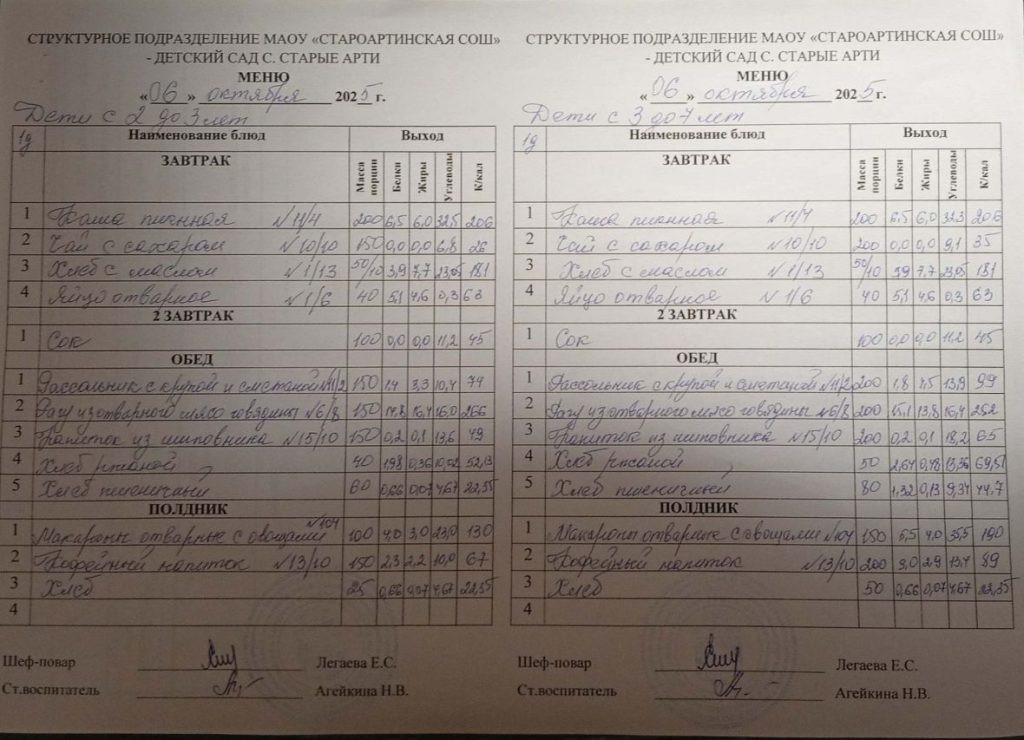 СТРУКТУРНОЕ ПОДРАЗДЕЛЕНИЕ МАОУ «СТАРОАРТИНСКАЯ СОШ»
- ДЕТСКИЙ САД С. СТАРЫЕ АРТИ
МЕНЮ
«06» октября 2025 г.
Дети с 2 до 3 лет
1д Наименование блюд Выход
ЗАВТРАК Масса порции Белки Жиры Углеводы К/кал
1 Каша пшенная №11/4 200 6,5 6,0 32,5 206
2 Чай с сахаром №10/10 150 0,0 0,0 6,8 26
3 Хлеб с маслом №1/13 50/10 3,9 7,7 23,05 181
4 Яйцо отварное №1/6 40 5,1 4,6 0,3 63
2 ЗАВТРАК
1 Сок 100 0,0 0,0 11,2 45
ОБЕД
1 Рассольник с крупой и сметаной №11/2 150 1,4 3,3 10,4 74
2 Рагу из отварного мясо говядины №6/8 150 14,8 16,4 16,0 266
3 Напиток из шиповника №15/10 150 0,2 0,1 13,6 49
4 Хлеб ржаной 40 1,98 0,36 10,02 52,13
5 Хлеб пшеничный 60 0,66 0,07 4,67 22,35
ПОЛДНИК
1 Макароны отварные с овощами №104 100 4,0 3,0 23,0 130
2 Кофейный напиток №13/10 150 2,3 2,2 10,0 67
3 Хлеб 25 0,66 0,07 4,67 22,35
4
Шеф-повар Легаева Е.С.
Ст.воспитатель Агейкина Н.В.
СТРУКТУРНОЕ ПОДРАЗДЕЛЕНИЕ МАОУ «СТАРОАРТИНСКАЯ СОШ»
- ДЕТСКИЙ САД С. СТАРЫЕ АРТИ
МЕНЮ
«06» октября 2025 г.
Дети с 3 до 7 лет
1д Наименование блюд Выход
ЗАВТРАК Масса порции Белки Жиры Углеводы К/кал
1 Каша пшенная №11/4 200 6,5 6,0 32,3 206
2 Чай с сахаром №10/10 200 0,0 0,0 9,1 35
3 Хлеб с маслом №1/13 50/10 3,9 7,7 23,05 181
4 Яйцо отварное №1/6 40 5,1 4,6 0,3 63
2 ЗАВТРАК
1 Сок 100 0,0 0,0 11,2 45
ОБЕД
1 Рассольник с крупой и сметаной №11/2 200 1,8 4,5 13,9 99
2 Рагу из отварного мясо говядины №6/8 200 15,1 13,8 16,4 252
3 Напиток из шиповника №15/10 200 0,2 0,1 18,2 65
4 Хлеб ржаной 50 2,64 0,48 13,36 69,51
5 Хлеб пшеничный 80 1,32 0,13 9,34 44,7
ПОЛДНИК
1 Макароны отварные с овощами №104 150 5,5 4,0 35,5 190
2 Кофейный напиток №13/10 200 3,0 2,9 13,4 89
3 Хлеб 50 0,66 0,07 4,67 22,35
4
Шеф-повар Легаева Е.С.
Ст.воспитатель Агейкина Н.В.